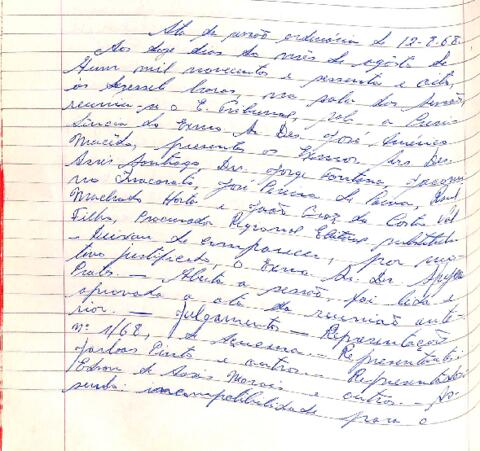 Ata da sessão ordinária de 12-8-68.
Aos doze dias do mês de agôsto de
Hum mil novecentos e sessenta e oito,
às dezesseis horas, na sala das sessões,
reuniu-se o E. Tribunal, sob a Presi-
dência do Exmo. Sr. Des. José Américo
Macêdo, presentes os Exmos. Srs. Des.
Assis Santiago, Drs. Jorge Fontana, Jacomi-
no Inacarato, José Pereira de Paiva, Raul
Machado Horta e João Cruz da Costa Val
Filho, Procurador Regional Eleitoral substituto
- Deixou de comparecer, por mo-
tivo justificado, o Exmo. Sr. Dr.
Prates. - Aberta a sessão, foi lida e
aprovada a ata da reunião ante-
rior. - Julgamentos - Representação
nº 1/68, de - Representantes:
Jarbas e outros - Representados:
Edson de Assis Morais e outros - As-
sunto: incompatibilidade para o